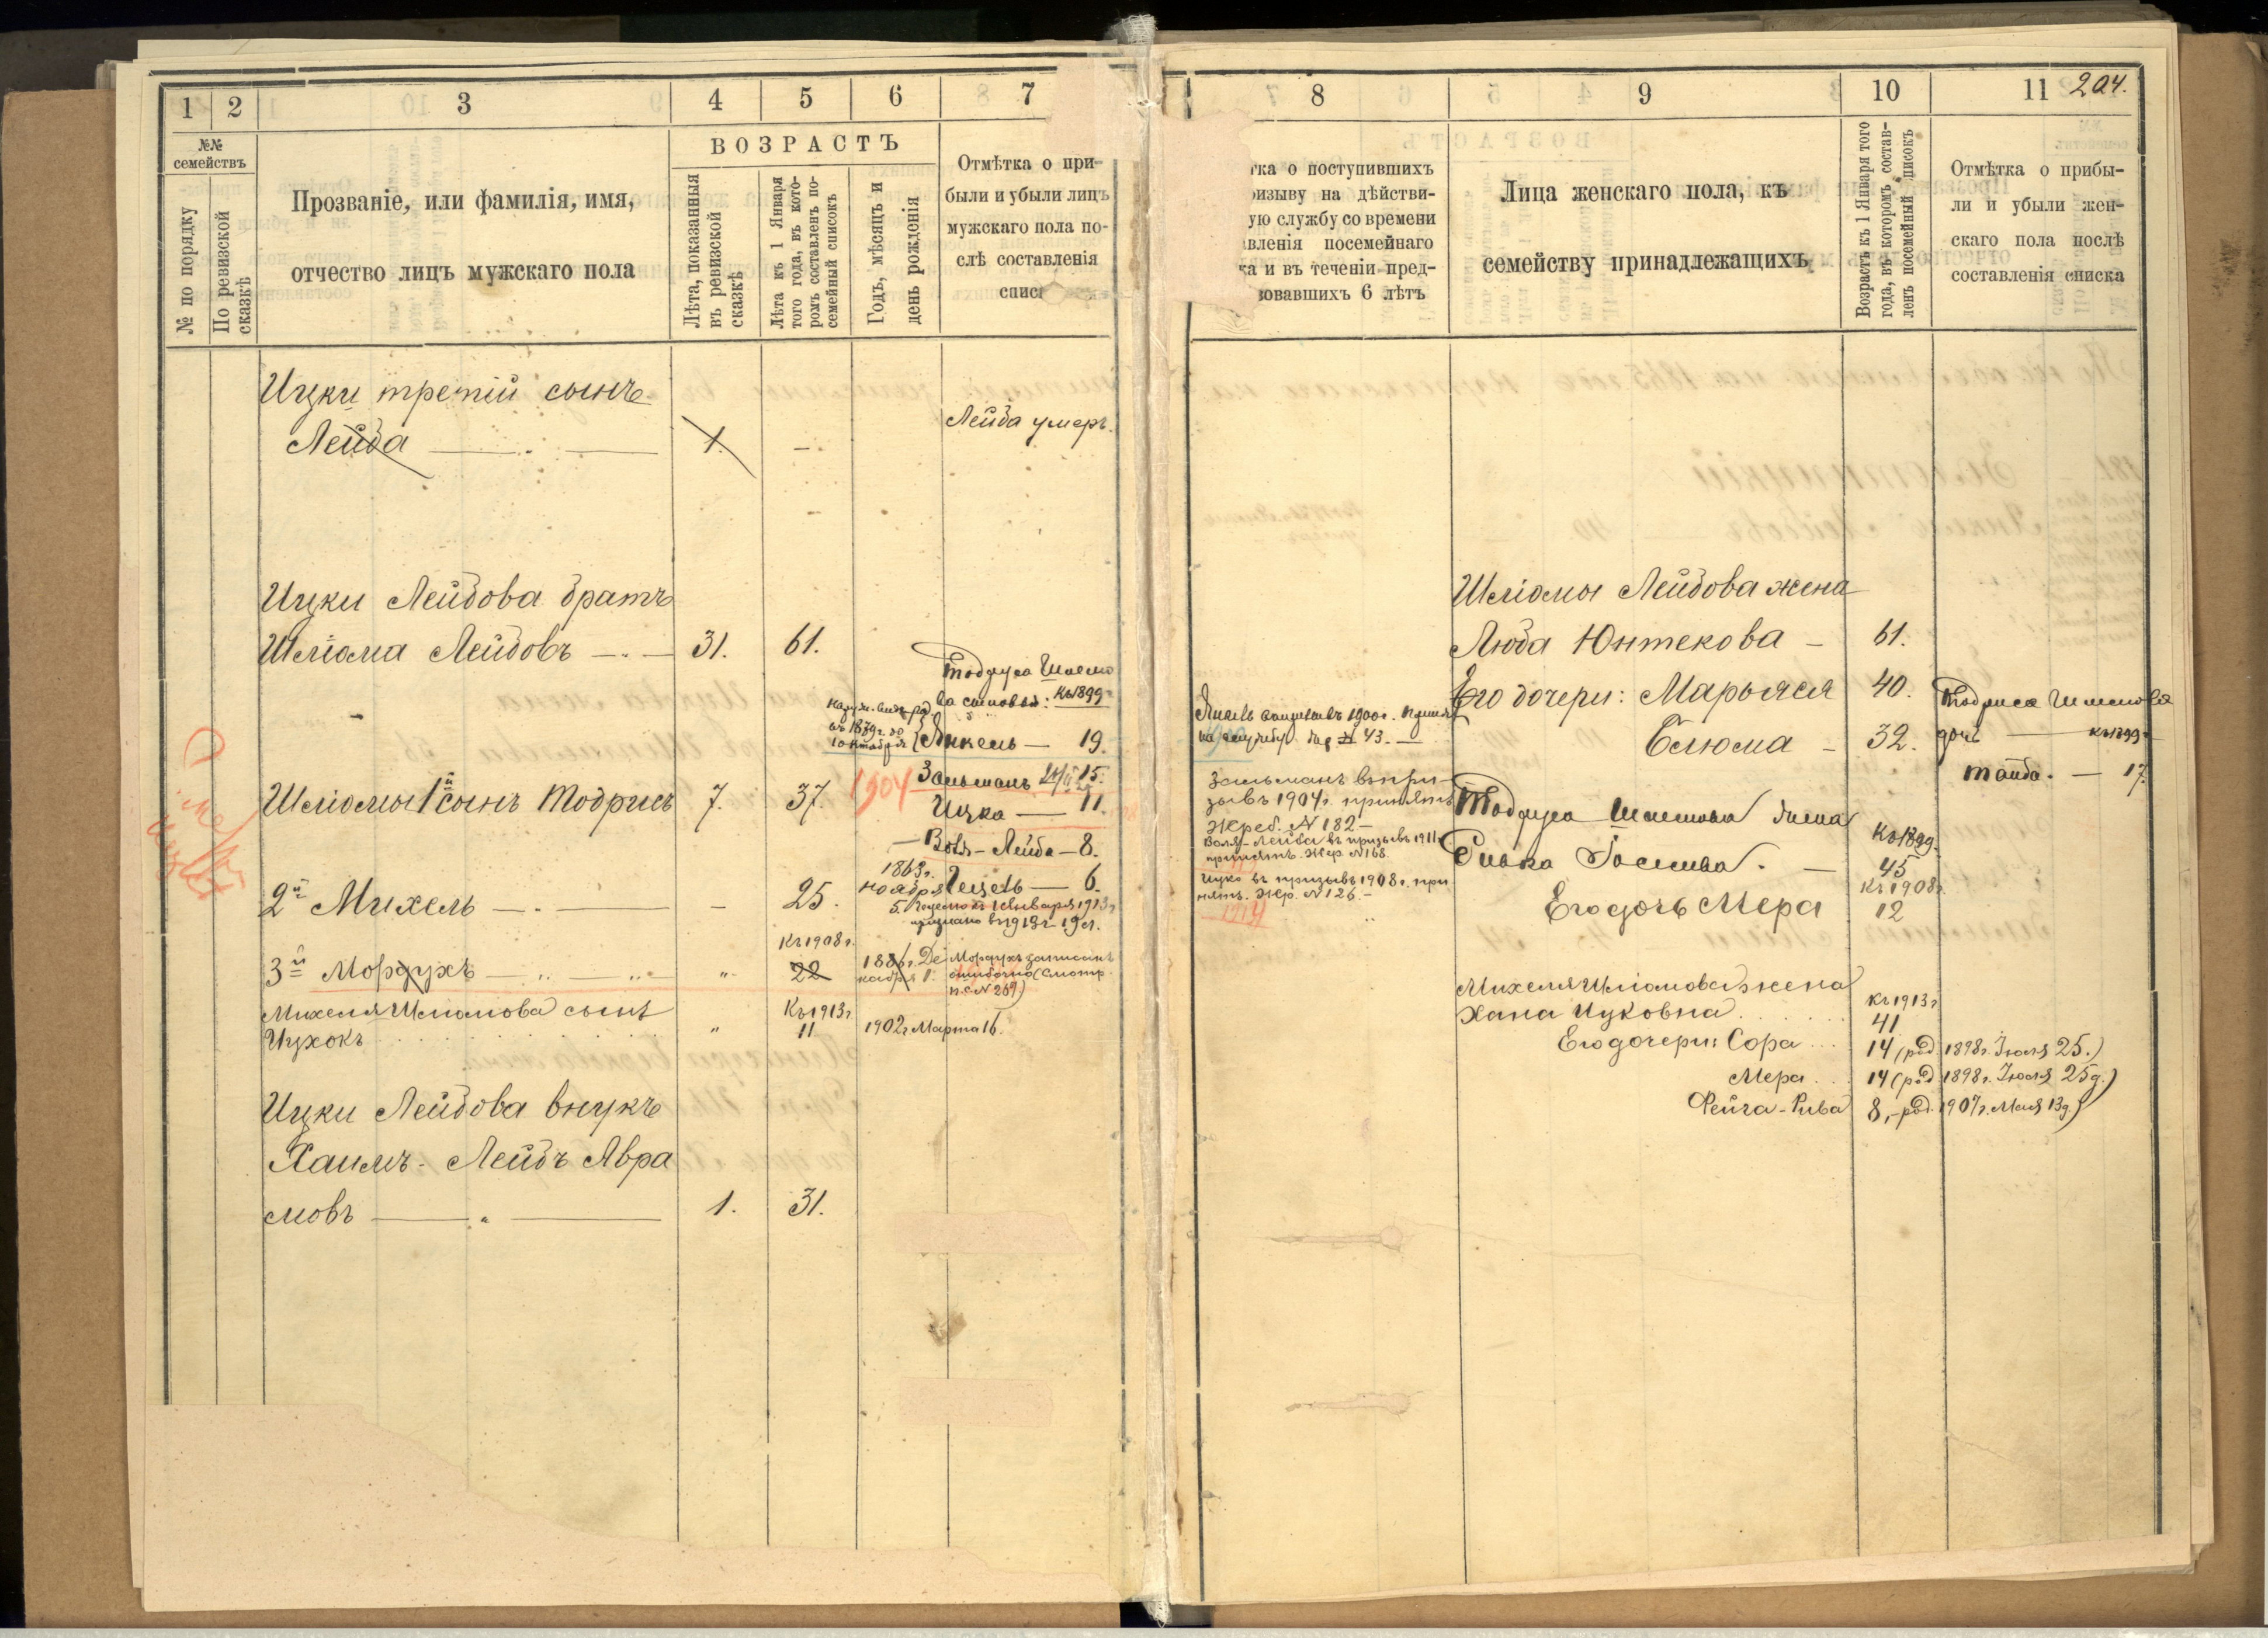 1 2 3 4 5 6 7
№№ семействъ
№ по порядку
По ревизской сказкѣ
Прозваніе, или фамилія, имя,
отчество лицъ мужскаго пола
ВОЗРАСТЪ
Лѣта, показанныя
въ ревизской
сказкѣ
Лѣта къ 1 Января
того года, въ кото-
ромъ составленъ по-
семейный списокъ
Годъ, мѣсяцъ и
день рожденія
Отмѣтка о при-
были и убыли лицъ
мужскаго пола по-
слѣ составленія
спис
Ицки третій сынъ
Лейба 1. - Лейба умеръ.
Ицки Лейбова братъ
Шліома Лейбовъ 31. 61.
Тодриса Шлемо
ва сыновья: Къ 1899 г.
въ 1879 г. 
10 октября Янкель — 19.
1904 Зельманъ 15.
Шліомы 1й сынъ Тодрисъ 7. 37.
Ицка — 11.
Вовя-Лейба — 8.
1863 г.
ноября
5.
Гецель — 6.
къ 1 Января 1913 г.
признано въ 1913 г. 19 л.
2й Михель - 25.
Къ 1908 г.
3й Мордухъ " 22 1886 г. Де
кабря 1.
Мордухъ записанъ
ошибочно (Смотр.
п.с. № 269)
Михеля Шліомова сынъ
Ицхокъ " Къ 1913 г. 11 1902 г. Марта 16.
Ицки Лейбова внукъ
Хаимъ-Лейбъ Авра
мовъ 1. 31.
8 9 10 11 204.
тка о поступившихъ
ризыву на дѣйстви-
ую службу со времени
вленія посемейнаго
ка и въ теченіи пред-
вовавшихъ 6 лѣтъ
Лица женскаго пола, къ
семейству принадлежащихъ
Возрастъ къ 1 Января того
года, въ которомъ состав-
ленъ посемейный списокъ
Отмѣтка о прибы-
ли и убыли жен-
скаго пола послѣ
составленія списка
Шліомы Лейбова жена
Люба Юнтекова - 61.
Его дочери: Марьяся 40.
Блюма - 32.
Тодриса Шлемова
дочь — къ 1899 г.
Тайба. — 17.
Янкель въ 1900 г. принятъ
на службу 43.
Зельманъ въ при-
зывъ 1904 г. принятъ
Жреб. № 182 -
Вовя-Лейба въ призывъ 1911 г.
принятъ. Жер. № 168.
Ицко въ призывъ 1908 г. при
нятъ. Жр. № 126. -
1914
Тодриса Шлемова жена
Ривка Іоселева. — Къ 1899 г. 45
Его дочь Мера Къ 1908 г. 12
Михеля Шліомова жена
Хана Ицковна Къ 1913 г. 41
Его дочери: Сора 14 (род. 1898 г. Іюля 25.)
Мера 14 (род. 1898 г. Іюля 25 д.)
Фейга-Рива 8, - род. 1907 г. Мая 13 д.)